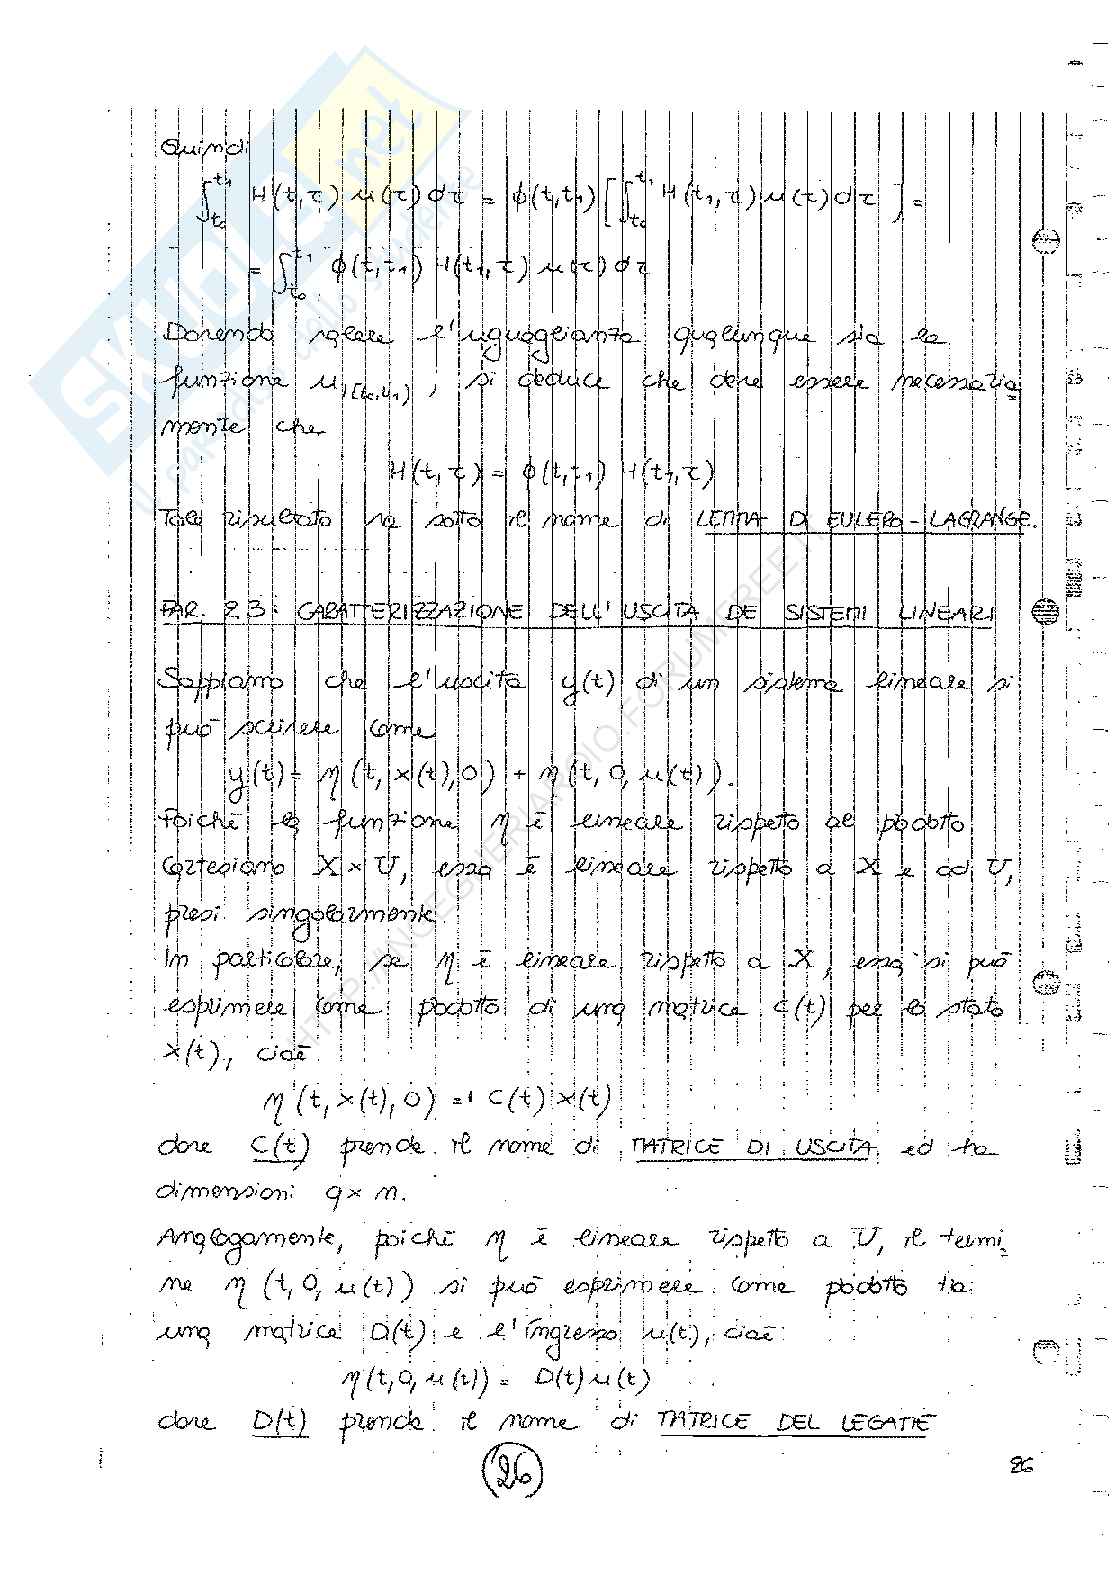 Quindi
∫_{t0}^{t1} H(t,τ) u(τ) dτ = φ(t,t1) [∫_{t0}^{t1} H(t1,τ) u(τ) dτ] =
= ∫_{t0}^{t1} φ(t,t1) H(t1,τ) u(τ) dτ
Dovendo valere l'uguaglianza qualunque sia la
funzione u|[t0,t1), si deduce che deve essere necessaria
mente che
H(t,τ) = φ(t,t1) H(t1,τ)
Tale risultato va sotto il nome di LEMMA DI EULERO-LAGRANGE.
PAR. 2.3: CARATTERIZZAZIONE DELL'USCITA DE SISTEMI LINEARI
Sappiamo che l'uscita y(t) di un sistema lineare si
può scrivere come
y(t) = η(t,x(t),0) + η(t,0,u(t)).
Poiché la funzione η è lineare rispetto al prodotto
cartesiano X×U, essa è lineare rispetto a X e ad U,
presi singolarmente.
In particolare, se η è lineare rispetto a X, essa si può
esprimere come prodotto di una matrice C(t) per lo stato
x(t), cioè
η(t,x(t),0) = C(t) x(t)
dove C(t) prende il nome di MATRICE DI USCITA ed ha
dimensioni q×n.
Analogamente, poiché η è lineare rispetto a U, il termi
ne η(t,0,u(t)) si può esprimere come prodotto tra
una matrice D(t) e l'ingresso u(t), cioè
η(t,0,u(t)) = D(t) u(t)
dove D(t) prende il nome di MATRICE DEL LEGAME
26
26
SKUOLA.net